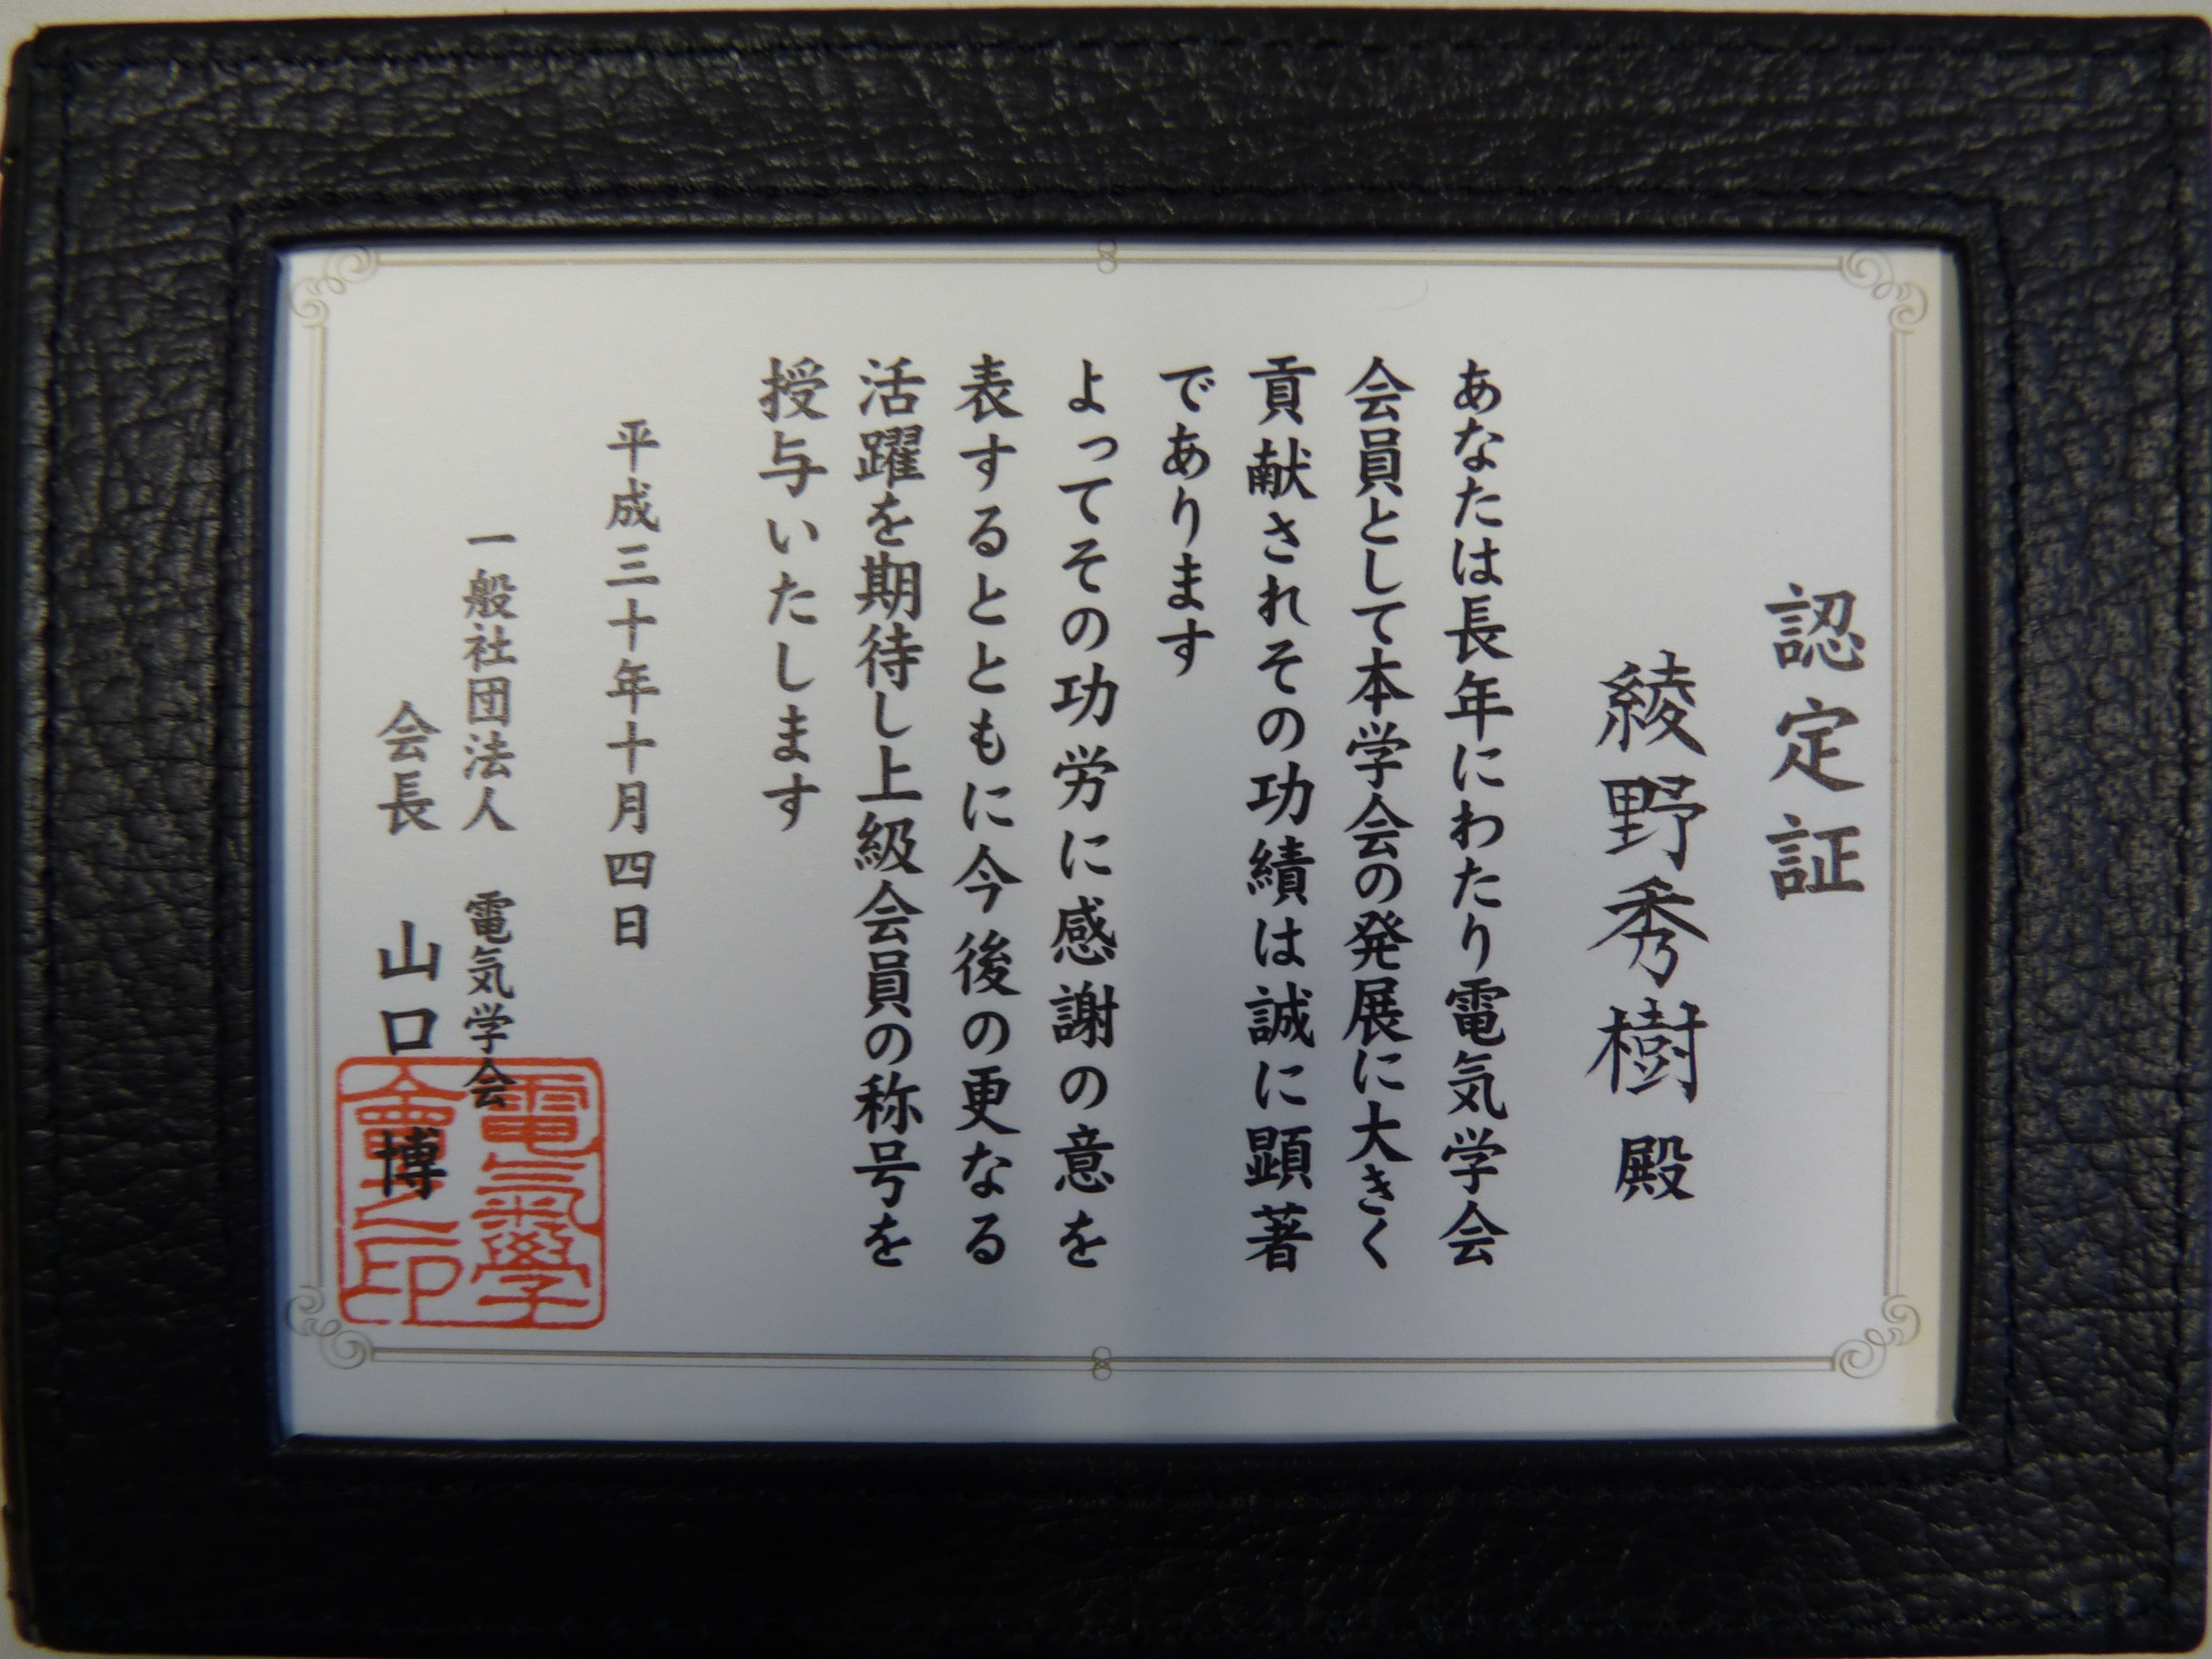 認定証
綾野秀樹 殿
あなたは長年にわたり電気学会
会員として本学会の発展に大きく
貢献されその功績は誠に顕著
であります
よってその功労に感謝の意を
表するとともに今後の更なる
活躍を期待し上級会員の称号を
授与いたします
平成三十年十月四日
一般社団法人 電気学会
会長 山口 博
電气學
會之印